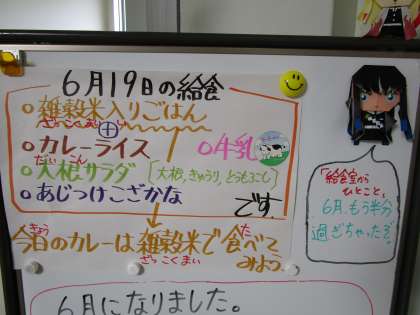 6月19日の給食
○雑穀米入りごはん
ざっこくまい
○カレーライス
○牛乳
だいこん
○大根サラダ(大根、きゅうり、とうもろこし)
○あじつけこざかな
です。
きょう た
今日のカレーは雑穀米で食べて
ざっこくまい
みよう。
「給食室から
ひとこと」
6月、もう半分
過ぎちゃったぞ
6月になりました。